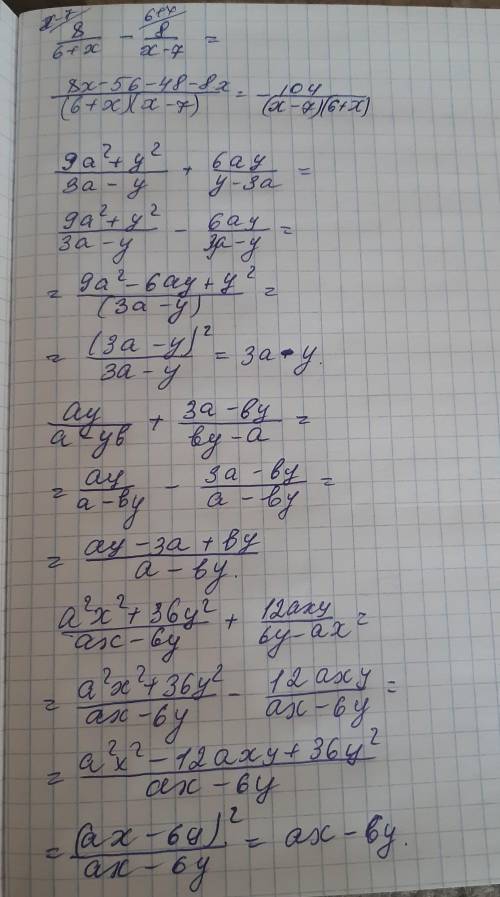 x-7 6+x
8/(6+x) - 8/(x-7) =
(8x-56-48-8x)/((6+x)(x-7)) = -104/((x-7)(6+x))
(9a²+y²)/(3a-y) + 6ay/(y-3a) =
(9a²+y²)/(3a-y) - 6ay/(3a-y) =
= (9a²-6ay+y²)/(3a-y) =
= (3a-y)²/(3a-y) = 3a-y.
ay/(a-yв) + (3a-вy)/(вy-a) =
= ay/(a-вy) - (3a-вy)/(a-вy) =
= (ay-3a+вy)/(a-вy).
(a²x²+36y²)/(ax-6y) + 12axy/(6y-ax) =
= (a²x²+36y²)/(ax-6y) - 12axy/(ax-6y) =
= (a²x²-12axy+36y²)/(ax-6y)
= (ax-6y)²/(ax-6y) = ax-6y.